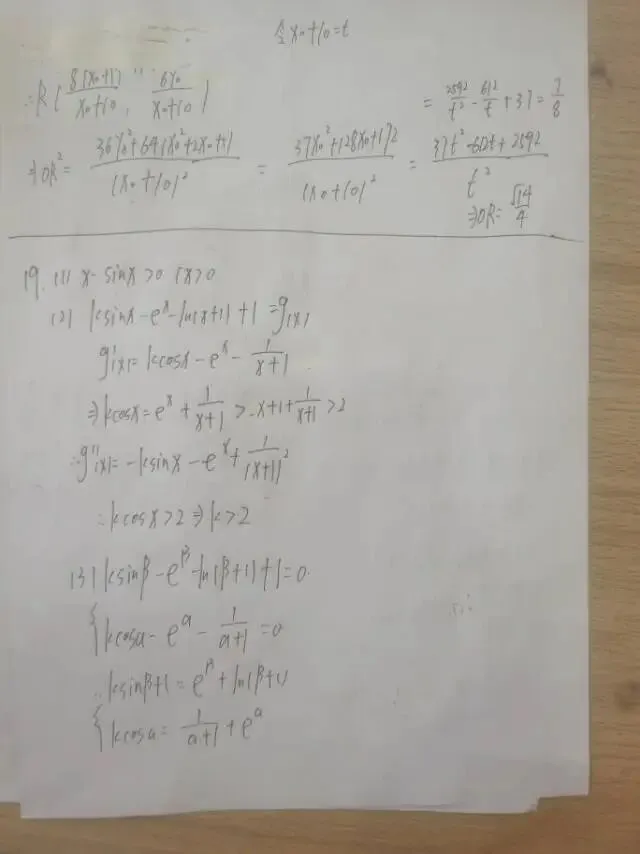 令x₀+10=t
∴R(8(x₀+1)/(x₀+10), 6y₀/(x₀+10))
⇒OR²=(36y₀²+64(x₀²+2x₀+1))/(x₀+10)² = (37x₀²+128x₀+172)/(x₀+10)² = (37t²-612t+2592)/t²
= 2592/t² - 612/t + 37 = 7/8
⇒OR=√14/4
19. (1) x-sinx>0 (x>0)
(2) ksinx-eˣ-ln(x+1)+1=g(x)
g'(x)=kcosx-eˣ-1/(x+1)
⇒kcosx=eˣ+1/(x+1)>x+1+1/(x+1)>2
∴g''(x)=-ksinx-eˣ+1/(x+1)²
∴kcosx>2⇒k>2
(3) ksinβ-e^β-ln(β+1)+1=0
{kcosa-e^a-1/(a+1)=0
∴ksinβ+1=e^β+ln(β+1)
{kcosa=1/(a+1)+e^a